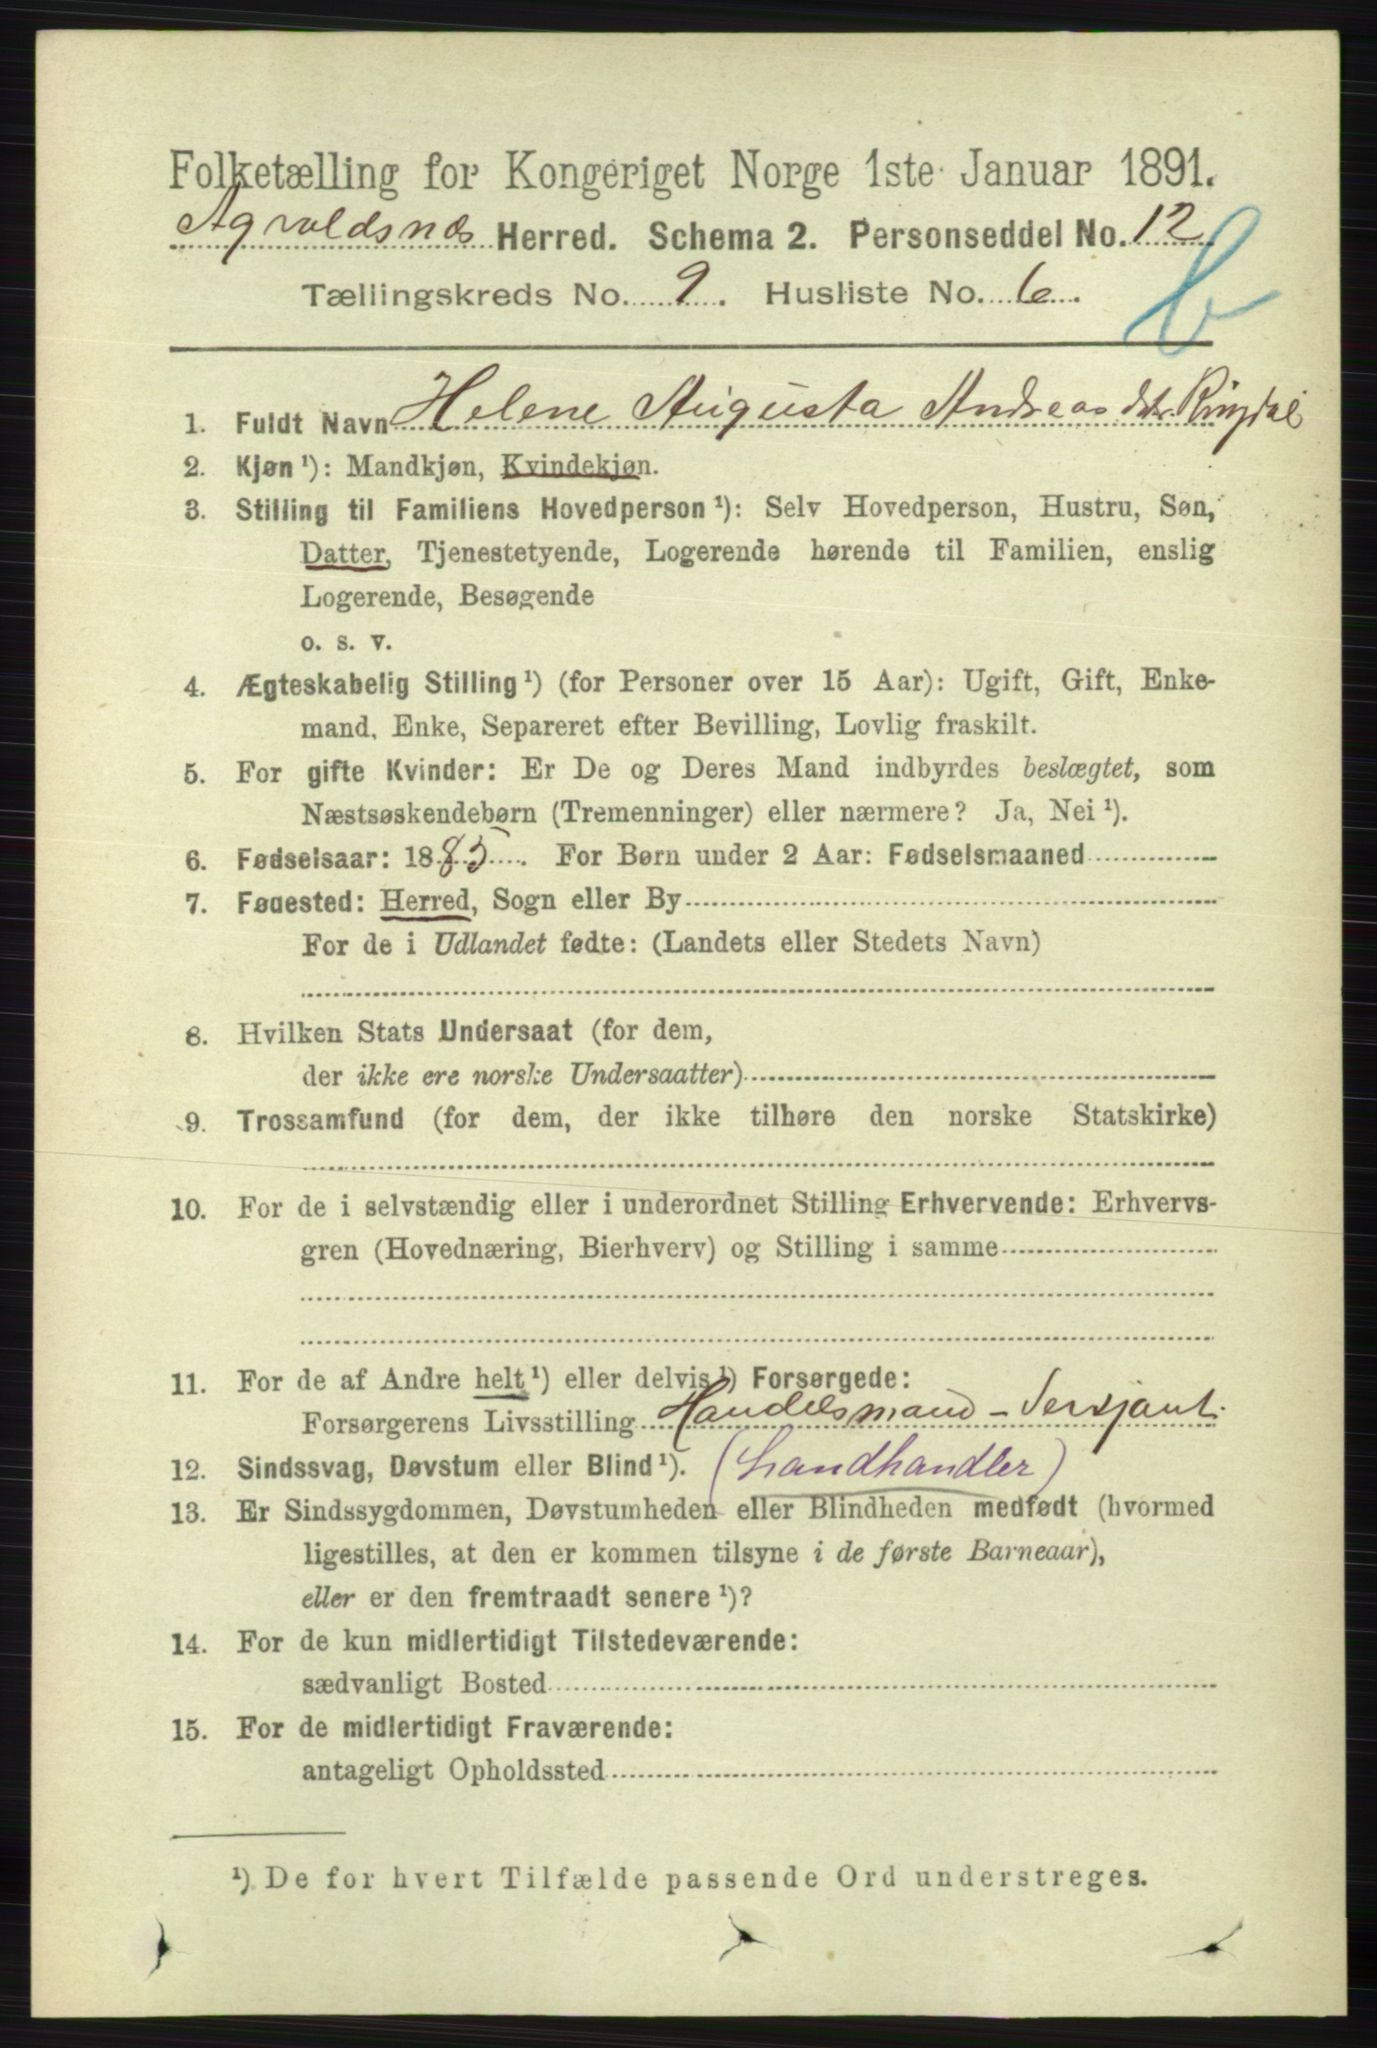 Folketælling for Kongeriget Norge 1ste Januar 1891.
Agvaldsnæs Herred. Schema 2. Personseddel No. 12
Tællingskreds No. 9. Husliste No. 6.
b
1. Fuldt Navn Helene Augusta Andreasdtr. Ringdal
2. Kjøn ¹): Mandkjøn, Kvindekjøn.
3. Stilling til Familiens Hovedperson ¹): Selv Hovedperson, Hustru, Søn,
Datter, Tjenestetyende, Logerende hørende til Familien, enslig
Logerende, Besøgende
o. s. v.
4. Ægteskabelig Stilling ¹) (for Personer over 15 Aar): Ugift, Gift, Enke-
mand, Enke, Separeret efter Bevilling, Lovlig fraskilt.
5. For gifte Kvinder: Er De og Deres Mand indbyrdes beslægtet, som
Næstsøskendebørn (Tremenninger) eller nærmere? Ja, Nei ¹).
6. Fødselsaar: 1885. For Børn under 2 Aar: Fødselsmaaned
7. Fødested: Herred, Sogn eller By
For de i Udlandet fødte: (Landets eller Stedets Navn)
8. Hvilken Stats Undersaat (for dem,
der ikke ere norske Undersaatter)
9. Trossamfund (for dem, der ikke tilhøre den norske Statskirke)
10. For de i selvstændig eller i underordnet Stilling Erhvervende: Erhvervs-
gren (Hovednæring, Bierhverv) og Stilling i samme
11. For de af Andre helt ¹) eller delvis ¹) Forsørgede:
Forsørgerens Livsstilling Handelsmand - Serxjant.
12. Sindssvag, Døvstum eller Blind ¹). (Landhandler)
13. Er Sindssygdommen, Døvstumheden eller Blindheden medfødt (hvormed
ligestilles, at den er kommen tilsyne i de første Barneaar),
eller er den fremtraadt senere ¹)?
14. For de kun midlertidigt Tilstedeværende:
sædvanligt Bosted
15. For de midlertidigt Fraværende:
antageligt Opholdssted
¹) De for hvert Tilfælde passende Ord understreges.